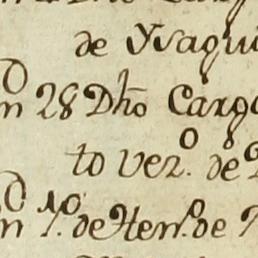 de Ysaqui
n 28 Dho Cargo
to vezo. de
n 1o. de Henro. de